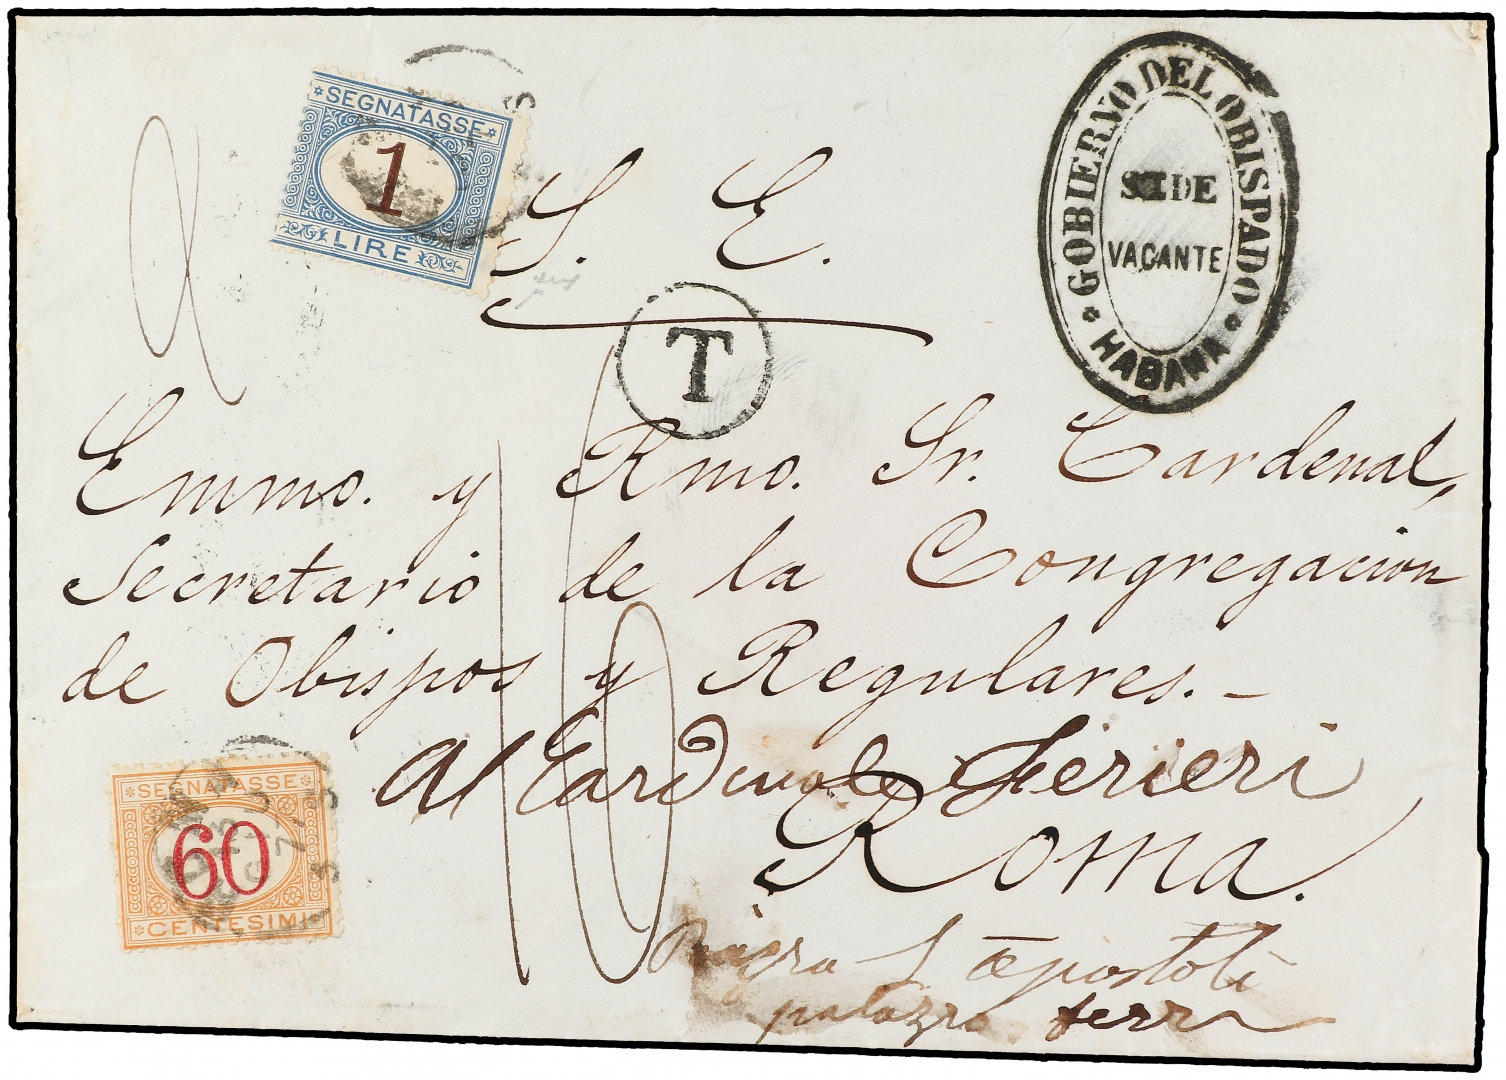 SEGNATASSE
1
LIRE
GOBIERNO DEL OBISPADO
SEDE
VACANTE
HABANA
S. E.
T
Emmo. y Rmo. Sr. Cardenal,
Secretario de la Congregacion
de Obispos y Regulares.-
Al Cardinale Ferieri
Roma.
S apostoli
palazzo
SEGNATASSE
60
CENTESIMI